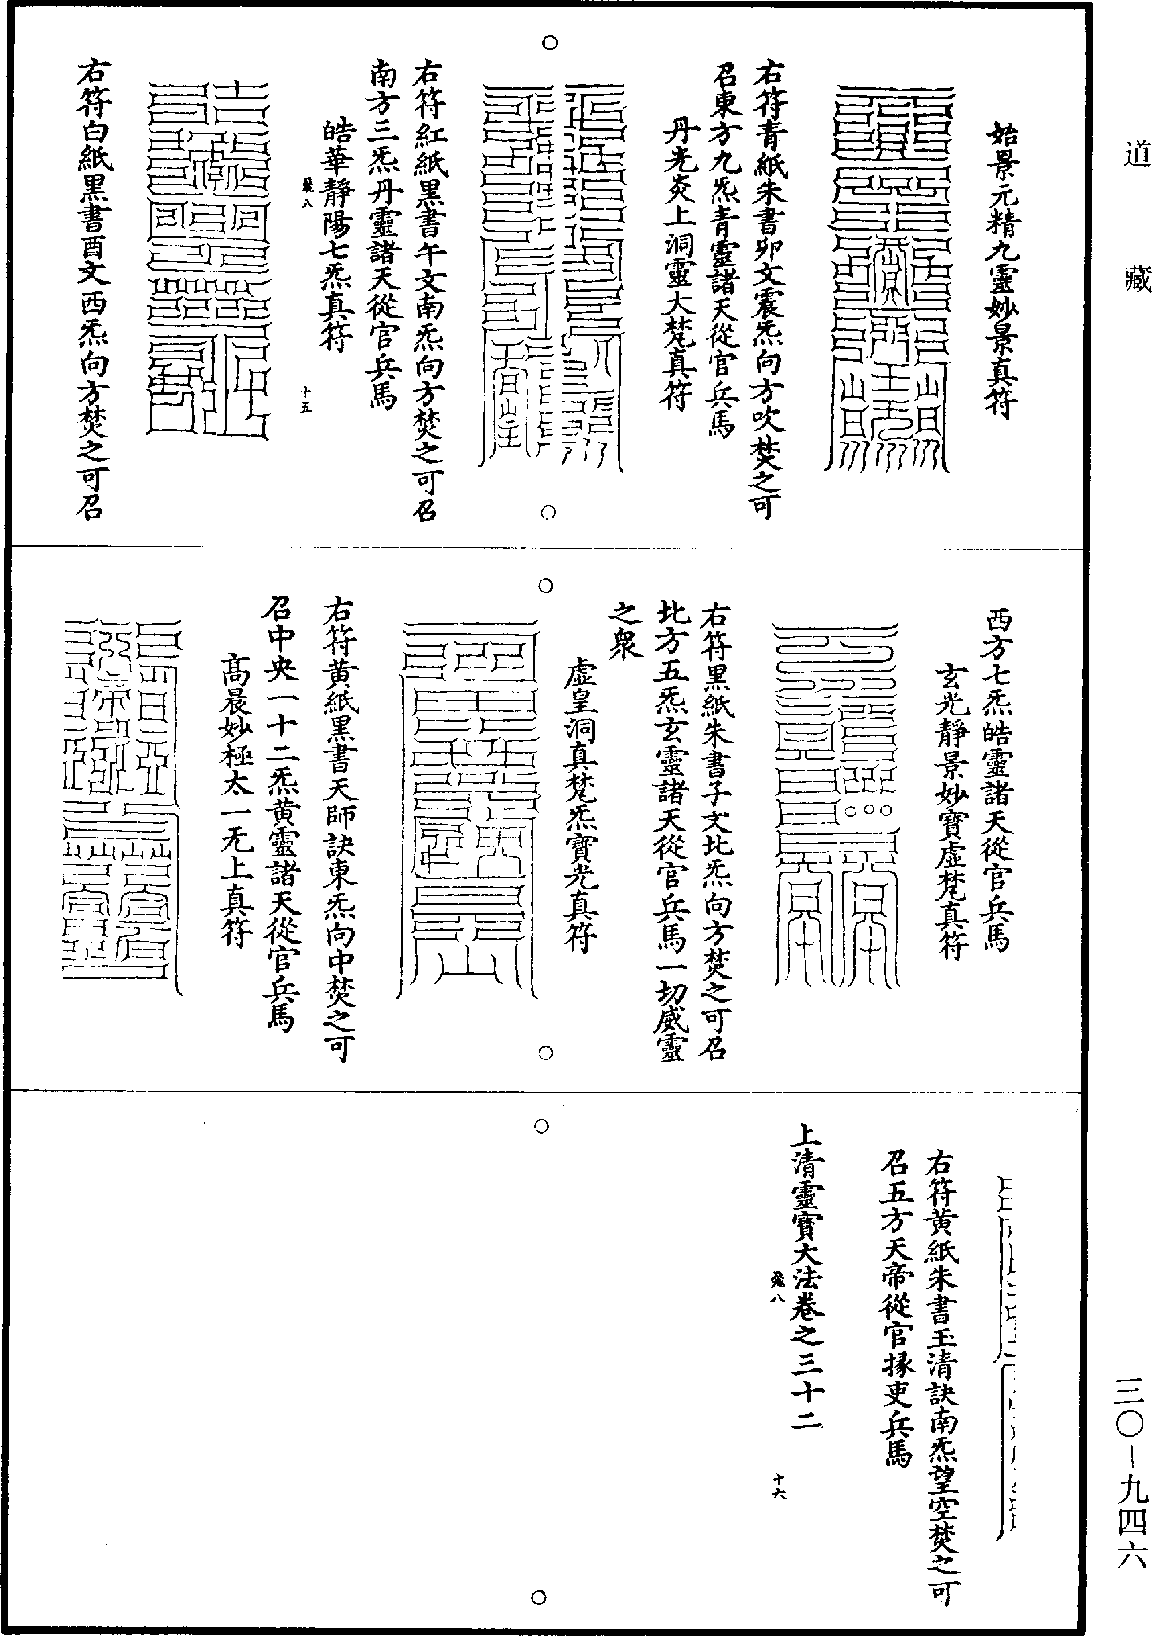 道藏
三〇—九四六
始景元精九靈妙景真符
右符青紙朱書卯文震炁向方吹焚之可
召東方九炁青靈諸天從官兵馬
丹光炎上洞靈大梵真符
右符紅紙黑書午文南炁向方焚之可召
南方三炁丹靈諸天從官兵馬
皓華靜陽七炁真符
十五
右符白紙黑書酉文西炁向方焚之可召
西方七炁皓靈諸天從官兵馬
玄光靜景妙寶虛梵真符
右符黑紙朱書子文北炁向方焚之可召
北方五炁玄靈諸天從官兵馬一切威靈
之衆
虛皇洞真梵炁寶光真符
右符黃紙黑書天師訣東炁向中焚之可
召中央一十二炁黃靈諸天從官兵馬
高晨妙極太一无上真符
右符黃紙朱書玉清訣南炁望空焚之可
召五方天帝從官掾吏兵馬
上清靈寶大法卷之三十二
十六